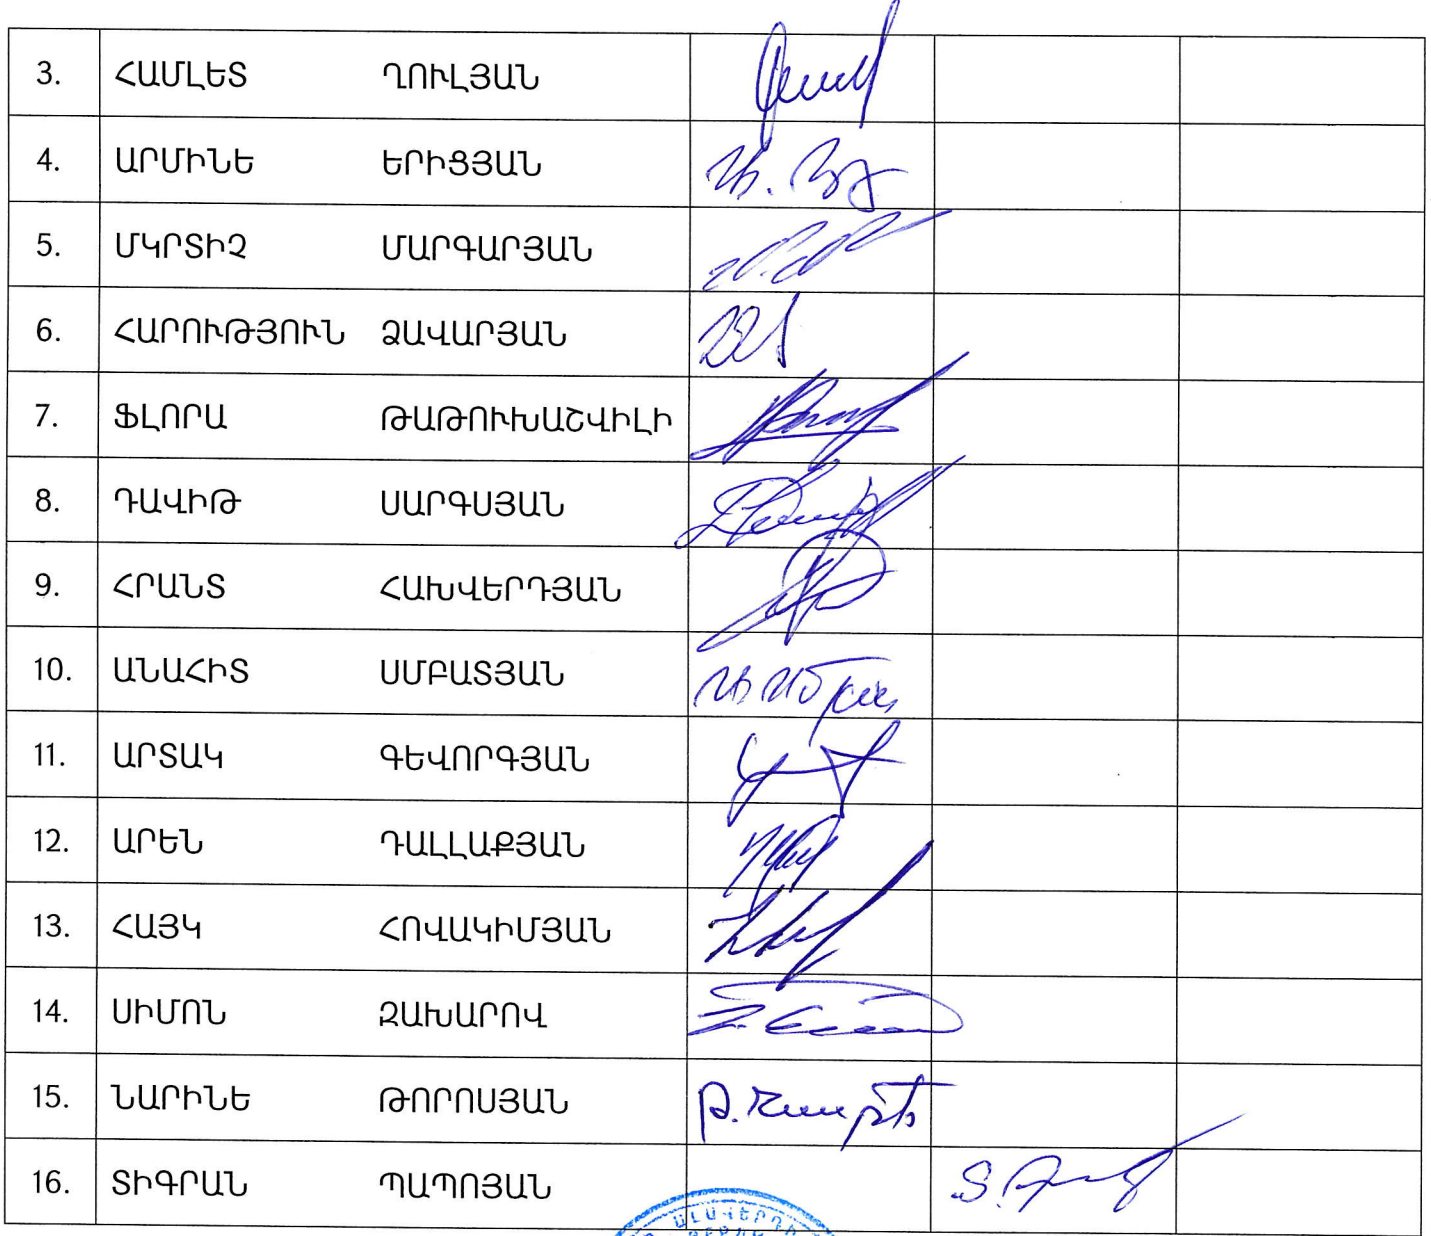 3. ՀԱՄԼԵՏ ՂՈՒԼՅԱՆ
4. ԱՐՄԻՆԵ ԵՐԻՑՅԱՆ
5. ՄԿՐՏԻՉ ՄԱՐԳԱՐՅԱՆ
6. ՀԱՐՈՒԹՅՈՒՆ ՁԱՎԱՐՅԱՆ
7. ՖԼՈՐԱ ԹԱԹՈՒԽԱՇՎԻԼԻ
8. ԴԱՎԻԹ ՍԱՐԳՍՅԱՆ
9. ՀՐԱՆՏ ՀԱԽՎԵՐԴՅԱՆ
10. ԱՆԱՀԻՏ ՍՄԲԱՏՅԱՆ
11. ԱՐՏԱԿ ԳԵՎՈՐԳՅԱՆ
12. ԱՐԵՆ ԴԱԼԼԱՔՅԱՆ
13. ՀԱՅԿ ՀՈՎԱԿԻՄՅԱՆ
14. ՍԻՄՈՆ ԶԱԽԱՐՈՎ
15. ՆԱՐԻՆԵ ԹՈՐՈՍՅԱՆ
16. ՏԻԳՐԱՆ ՊԱՊՈՅԱՆ